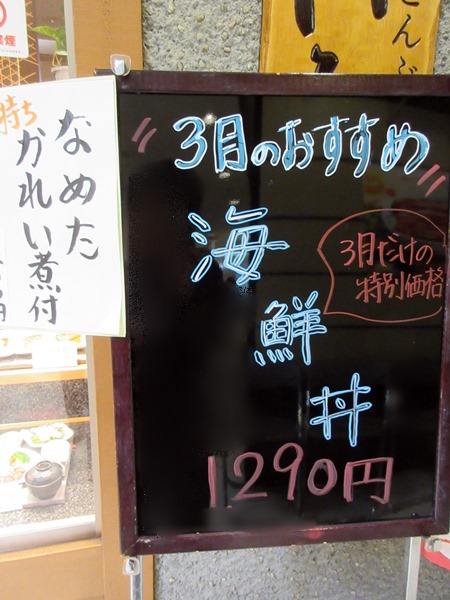 3月のおすすめ
海
鮮
丼
1290円
3月だけの
特別価格
持ち
なめた
かれい煮付
円
とんぶ
煙